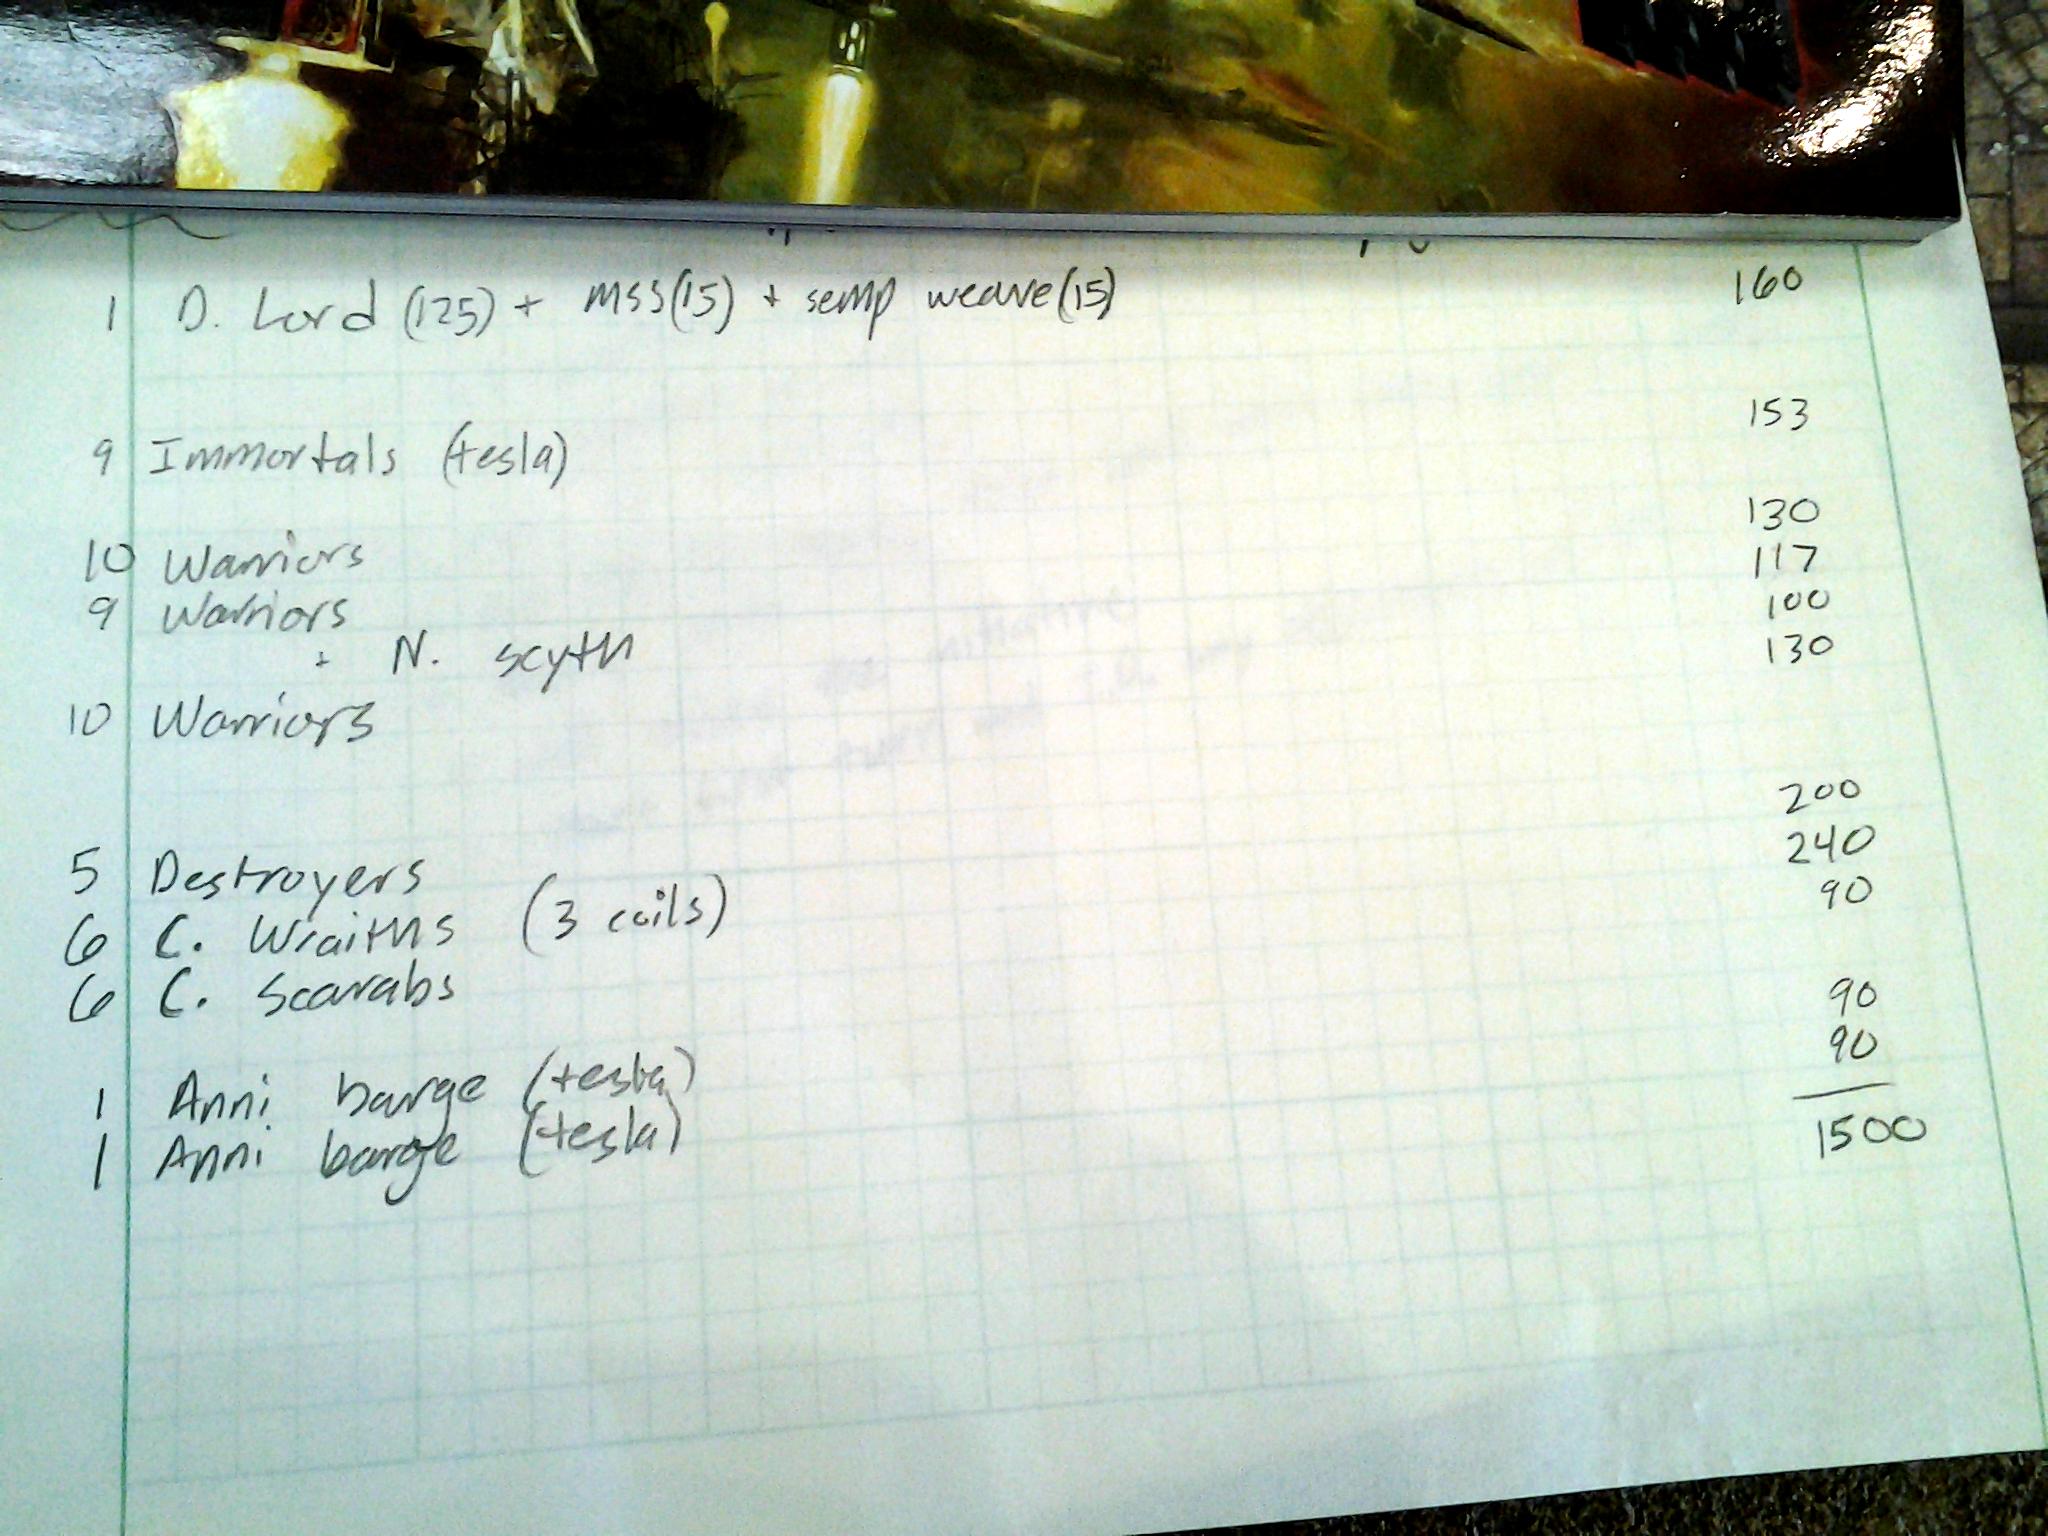 1 D. Lord (125) + mss(15) + semp weave(15) 160
9 Immortals (tesla) 153
10 Warriors 130
9 Warriors 117
+ N. scyth 100
10 Warriors 130
5 Destroyers 200
6 C. Wraiths (3 coils) 240
6 C. Scarabs 90
1 Anni barge (tesla) 90
1 Anni barge (tesla) 90
1500